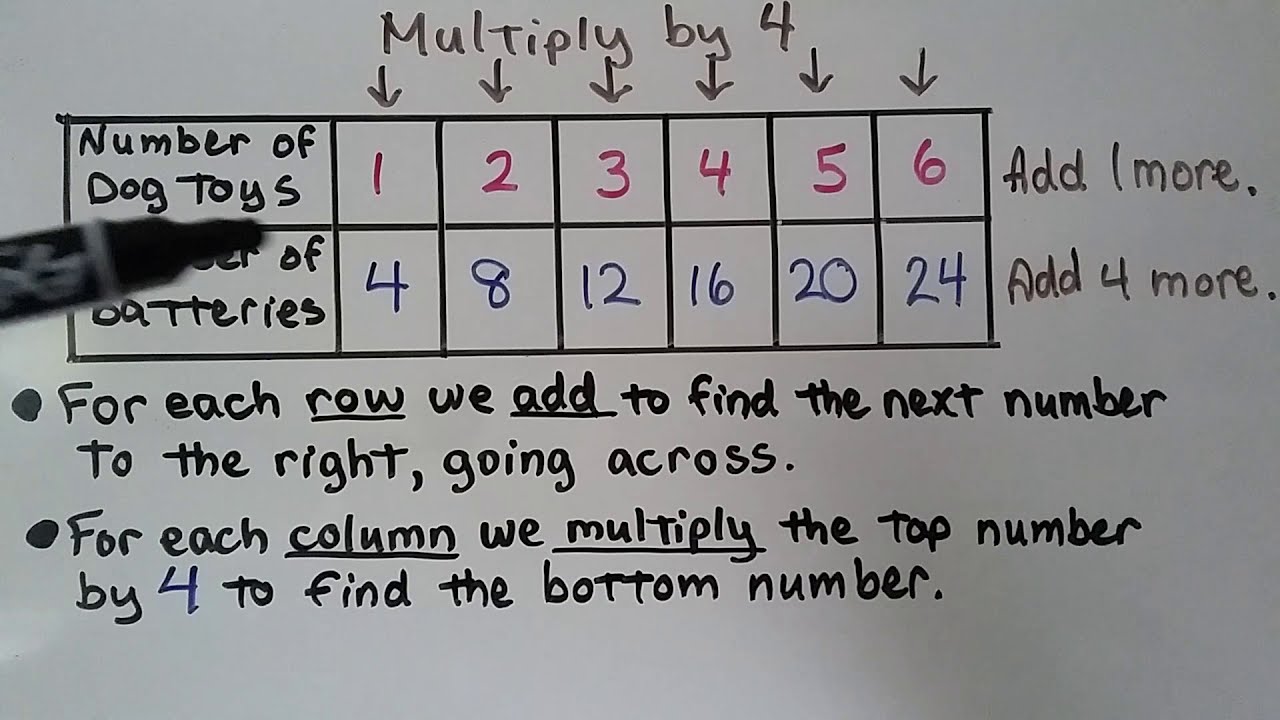 Multiply by 4
↓ ↓ ↓ ↓ ↓ ↓
Number of
Dog Toys
1 2 3 4 5 6 Add 1 more.
of
Batteries
4 8 12 16 20 24 Add 4 more.
● For each row we add to find the next number
to the right, going across.
● For each column we multiply the top number
by 4 to find the bottom number.